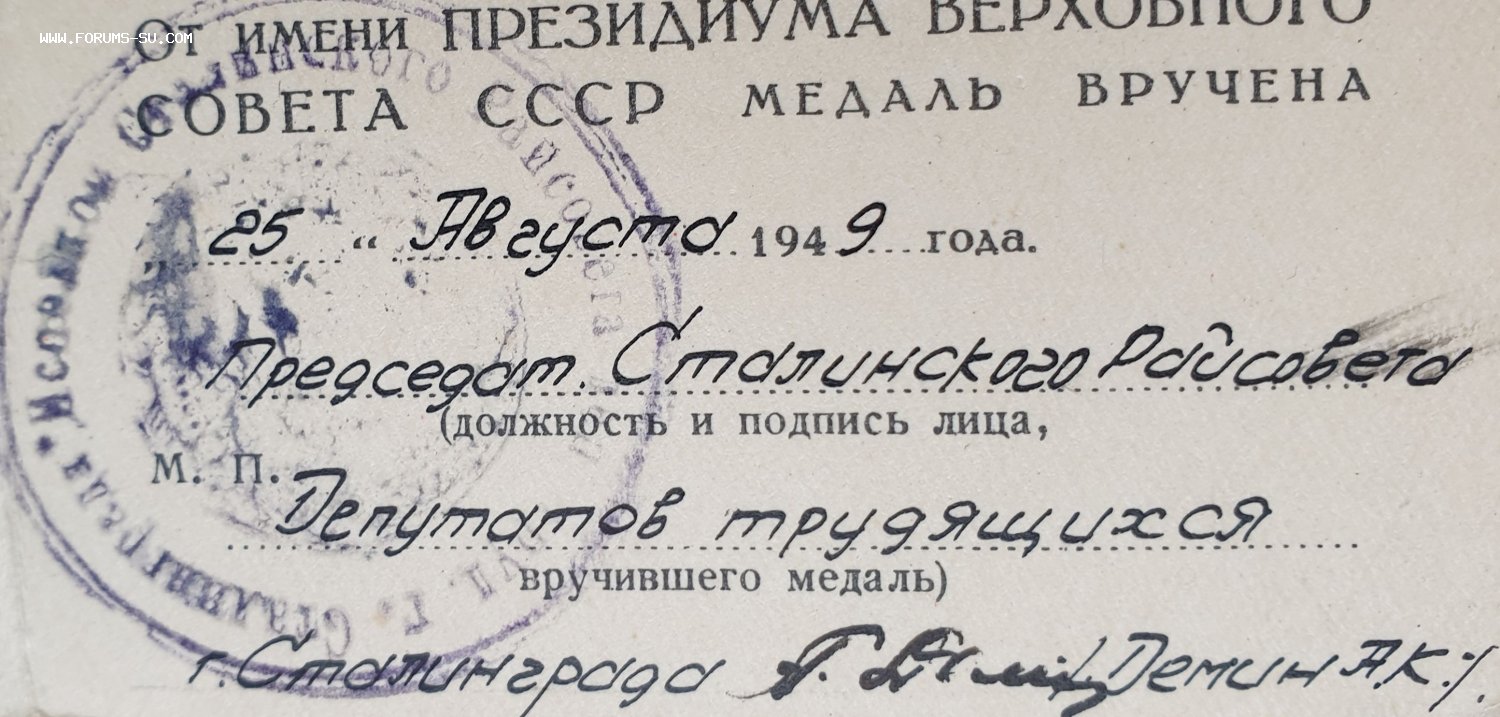 www.forums-su.com
От имени ПРЕЗИДИУМА ВЕРХОВНОГО
СОВЕТА СССР МЕДАЛЬ ВРУЧЕНА
„ 25 “ Августа 1949 года.
Председат. Сталинского Райсовета
(должность и подпись лица,
М. П.
Депутатов трудящихся
вручившего медаль)
г. Сталинграда /Демин А.К./
Исполком Сталинского Райсовета г. Сталинграда *